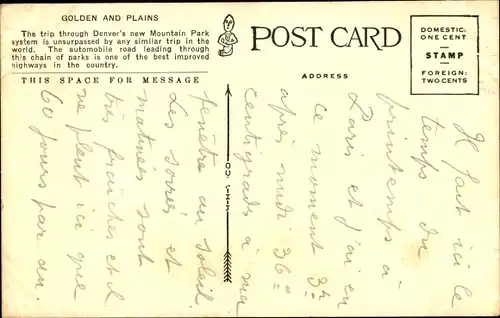 GOLDEN AND PLAINS
The trip through Denver's new Mountain Park
system is unsurpassed by any similar trip in the
world. The automobile road leading through
this chain of parks is one of the best improved
highways in the country.
THIS SPACE FOR MESSAGE
POST CARD
ADDRESS
DOMESTIC:
ONE CENT
STAMP
FOREIGN:
TWO CENTS
Il fait ici le
temps du
printemps à
Paris et j'ai en
ce moment 3h
après midi 36°
centigrads à ma
fenêtre au soleil.
Les soirées et
matinées sont
très fraîches et il
ne pleut ici que
60 jours par an.